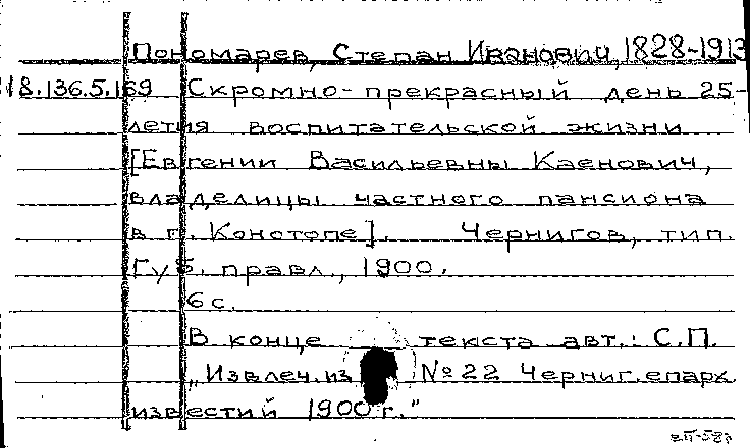 Пономарев, Степан Иванович, 1828-1913
18.136.5.169 Скромно-прекрасный день 25-
летия воспитательской жизни
[Евгении Васильевны Каенович,
владелицы частного пансиона
в г. Конотопе]. Чернигов, тип.
Губ. правл., 1900.
6 с.
В конце текста авт.: С.П.
„Извлеч. из №22 Черниг. епарх.
известий 1900 г."